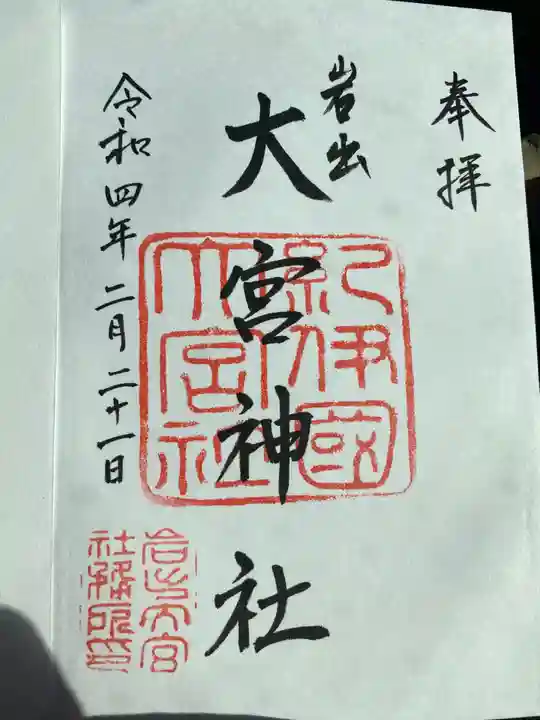 奉拝
岩出
大宮神社
紀伊國
大宮社
令和四年二月二十一日
岩出大宮
社務所印